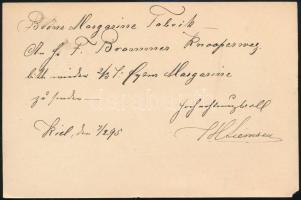 Böhm Margarine Fabrik
A. J. F. Brammer Knooperweg
bitte wieder 2/3 T. Margarine
zu senden —
Hochachtungsvoll
Kiel, den 7/2 95